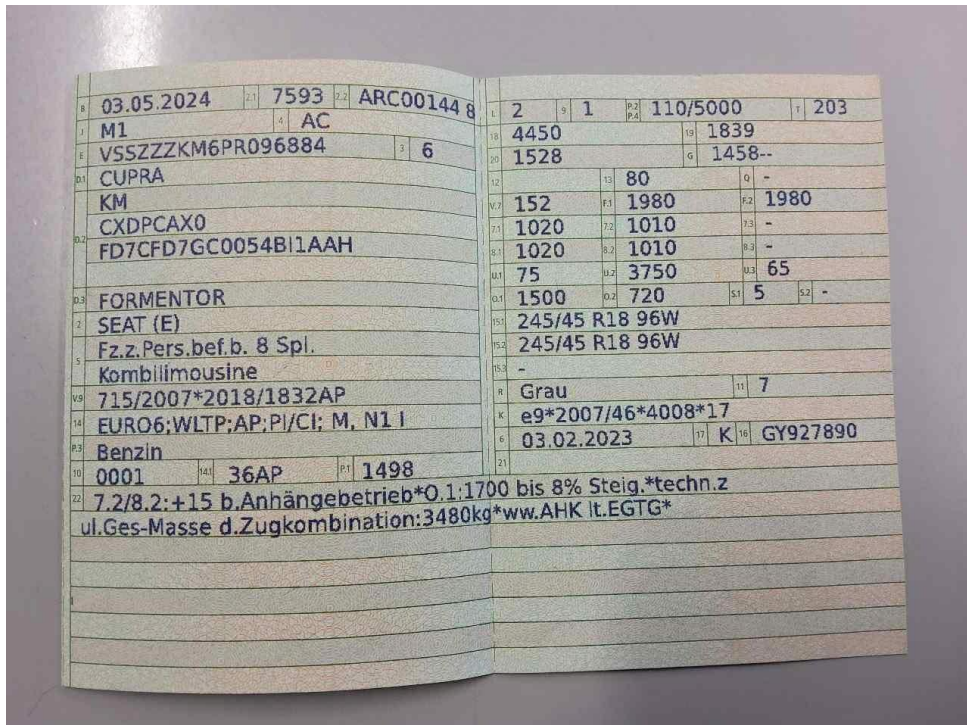 B 03.05.2024 2.1 7593 2.2 ARC00144 8
J M1 4 AC
E VSSZZZKM6PR096884 3 6
D.1 CUPRA
KM
D.2 CXDPCAX0
FD7CFD7GC0054BI1AAH
D.3 FORMENTOR
2 SEAT (E)
5 Fz.z.Pers.bef.b. 8 Spl.
Kombilimousine
V.9 715/2007*2018/1832AP
14 EURO6;WLTP;AP;PI/CI; M, N1 I
P.3 Benzin
10 0001 14.1 36AP P.1 1498
L 2 9 1 P.2 P.4 110/5000 T 203
18 4450 19 1839
20 1528 G 1458--
12 13 80 Q -
V.7 152 F.1 1980 F.2 1980
7.1 1020 7.2 1010 7.3 -
8.1 1020 8.2 1010 8.3 -
U.1 75 U.2 3750 U.3 65
O.1 1500 O.2 720 S.1 5 S.2 -
15.1 245/45 R18 96W
15.2 245/45 R18 96W
15.3 -
R Grau 11 7
K e9*2007/46*4008*17
6 03.02.2023 17 K 16 GY927890
21
22 7.2/8.2:+15 b.Anhängebetrieb*O.1:1700 bis 8% Steig.*techn.z
ul.Ges-Masse d.Zugkombination:3480kg*ww.AHK lt.EGTG*